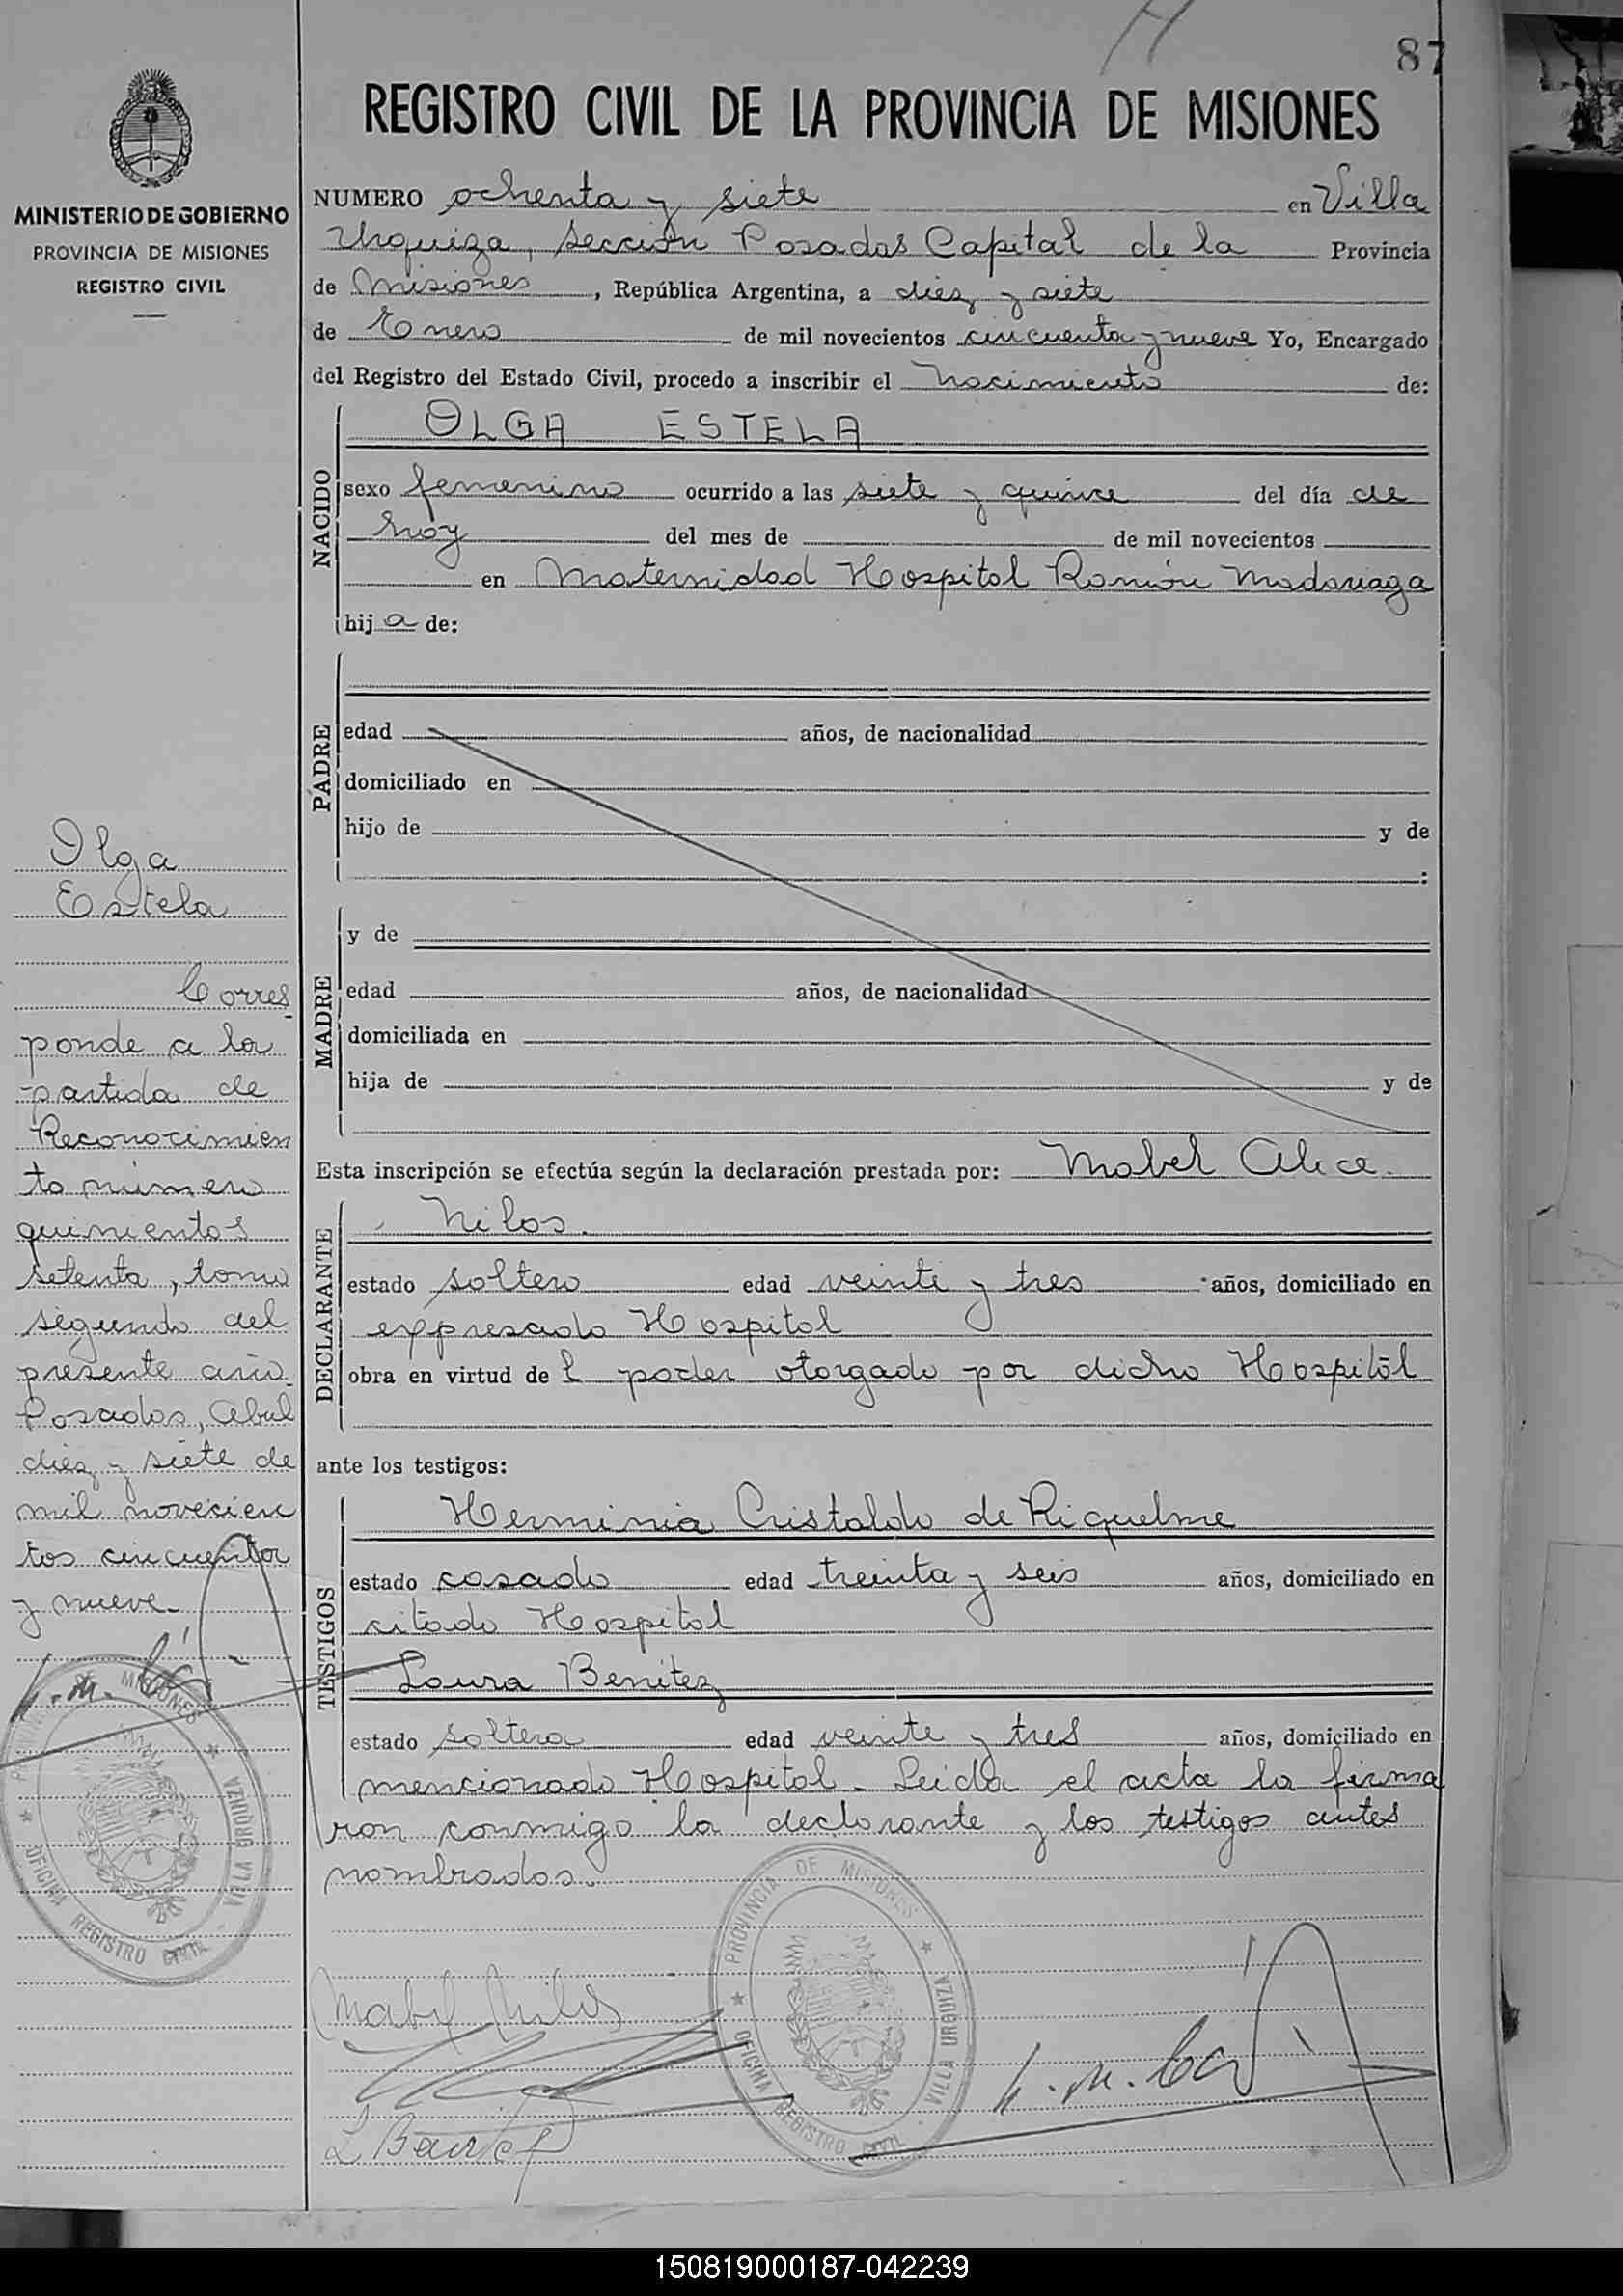 87
REGISTRO CIVIL DE LA PROVINCIA DE MISIONES
MINISTERIO DE GOBIERNO
PROVINCIA DE MISIONES
REGISTRO CIVIL
NUMERO ochenta y siete en Villa
Urquiza, sección Posadas Capital de la Provincia
de Misiones, República Argentina, a diez y siete
de Enero de mil novecientos cincuenta y nueve Yo, Encargado
del Registro del Estado Civil, procedo a inscribir el nacimiento de:
NACIDO
OLGA ESTELA
sexo femenino ocurrido a las siete y quince del día de
hoy del mes de de mil novecientos
en Maternidad Hospital Ramón Madariaga
hij a de:
PADRE
edad años, de nacionalidad
domiciliado en
hijo de y de
:
MADRE
y de
edad años, de nacionalidad
domiciliada en
hija de y de
Esta inscripción se efectúa según la declaración prestada por: Mabel Alice
DECLARANTE
Nilos.
estado soltero edad veinte y tres años, domiciliado en
expresado Hospital
obra en virtud de l poder otorgado por dicho Hospital
ante los testigos:
TESTIGOS
Herminia Cristaldo de Riquelme
estado casado edad treinta y seis años, domiciliado en
citado Hospital
Laura Benítez
estado soltera edad veinte y tres años, domiciliado en
mencionado Hospital. Leida el acta la firma
ron conmigo la declarante y los testigos antes
nombrados.
Mabel Nilos
PROVINCIA DE MISIONES
OFICINA REGISTRO CIVIL
VILLA URQUIZA
Olga
Estela
Corres
ponde a la
partida de
Reconocimien
to número
quinientos
setenta, tomo
segundo del
presente año.
Posadas, Abril
diez y siete de
mil novecien
tos cincuenta
y nueve.
PROVINCIA DE MISIONES
OFICINA REGISTRO CIVIL
VILLA URQUIZA
150819000187-042239